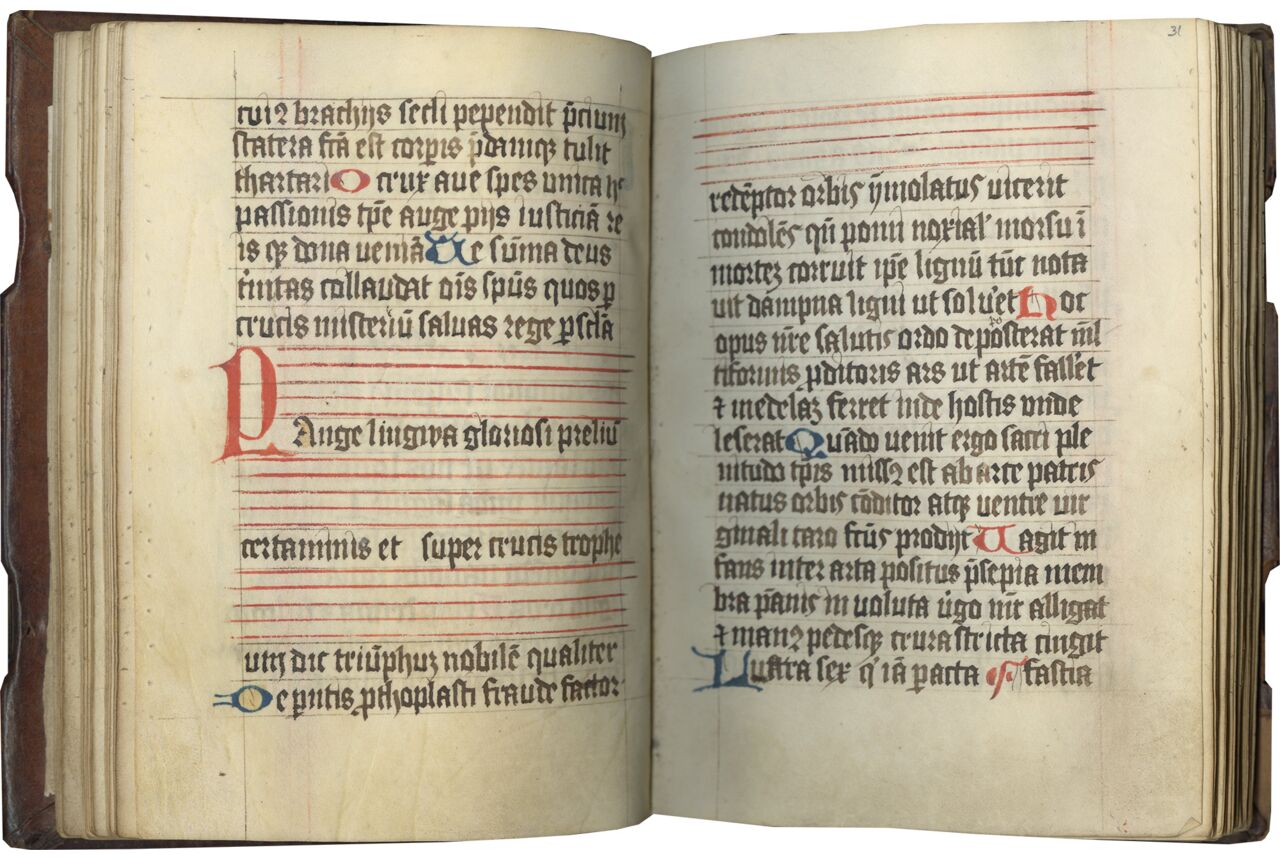 cuiꝰ brachijs secli pependit p̄cium
statera fc̄a est corpis p̄damqꝫ tulit
thartari O crux aue spes unica hͨ
passionis tp̄e auge pijs iusticiā re
is qꝫ dona ueniā Te sūma deus
t̍nitas collaudat oīs sp̄us quos ꝑ
crucis misteriū saluas rege ꝑ sc̄la
PAnge lingwa gloriosi preliū
certaminis et super crucis trophe
um dic triūphuꝫ nobilē qualiter
De pn̄tis ꝓthoplasti fraude factor
31
redēptor orbis ȳmolatus uicerit
condolēs qn̄ pomi noxial' morsu ī
morteꝫ corruit ip̄e lignū tūc nota
uit dampna ligni ut solu̍et Hoc
opus nr̄e salutis ordo depoposcerat ml̄
tiformis ꝓditoris ars ut artē fall̍et
⁊ medelaꝫ ferret inde hostis unde
leserat Quādo uenit ergo sacri ple
nitudo tp̄is missꝰ est ab arce patris
natus orbis cōditor atqꝫ uentre uir
ginali caro fc̄us prodijt Vagit in
fans inter arta positus p̄sepia mem
bra pānis in uoluta u̍go mr̄ alligat
⁊ manꝰ pedesqꝫ crura stricta cingit
Lustra sex q̍ iā ꝑacta fastia